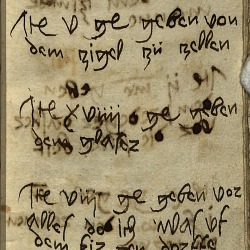 Ite v ge geben von
dem zigel zů zellen
Ite xviiij ge geben
dem glasez
Ite viij ge geben voz
alles do ich waß vf
dem